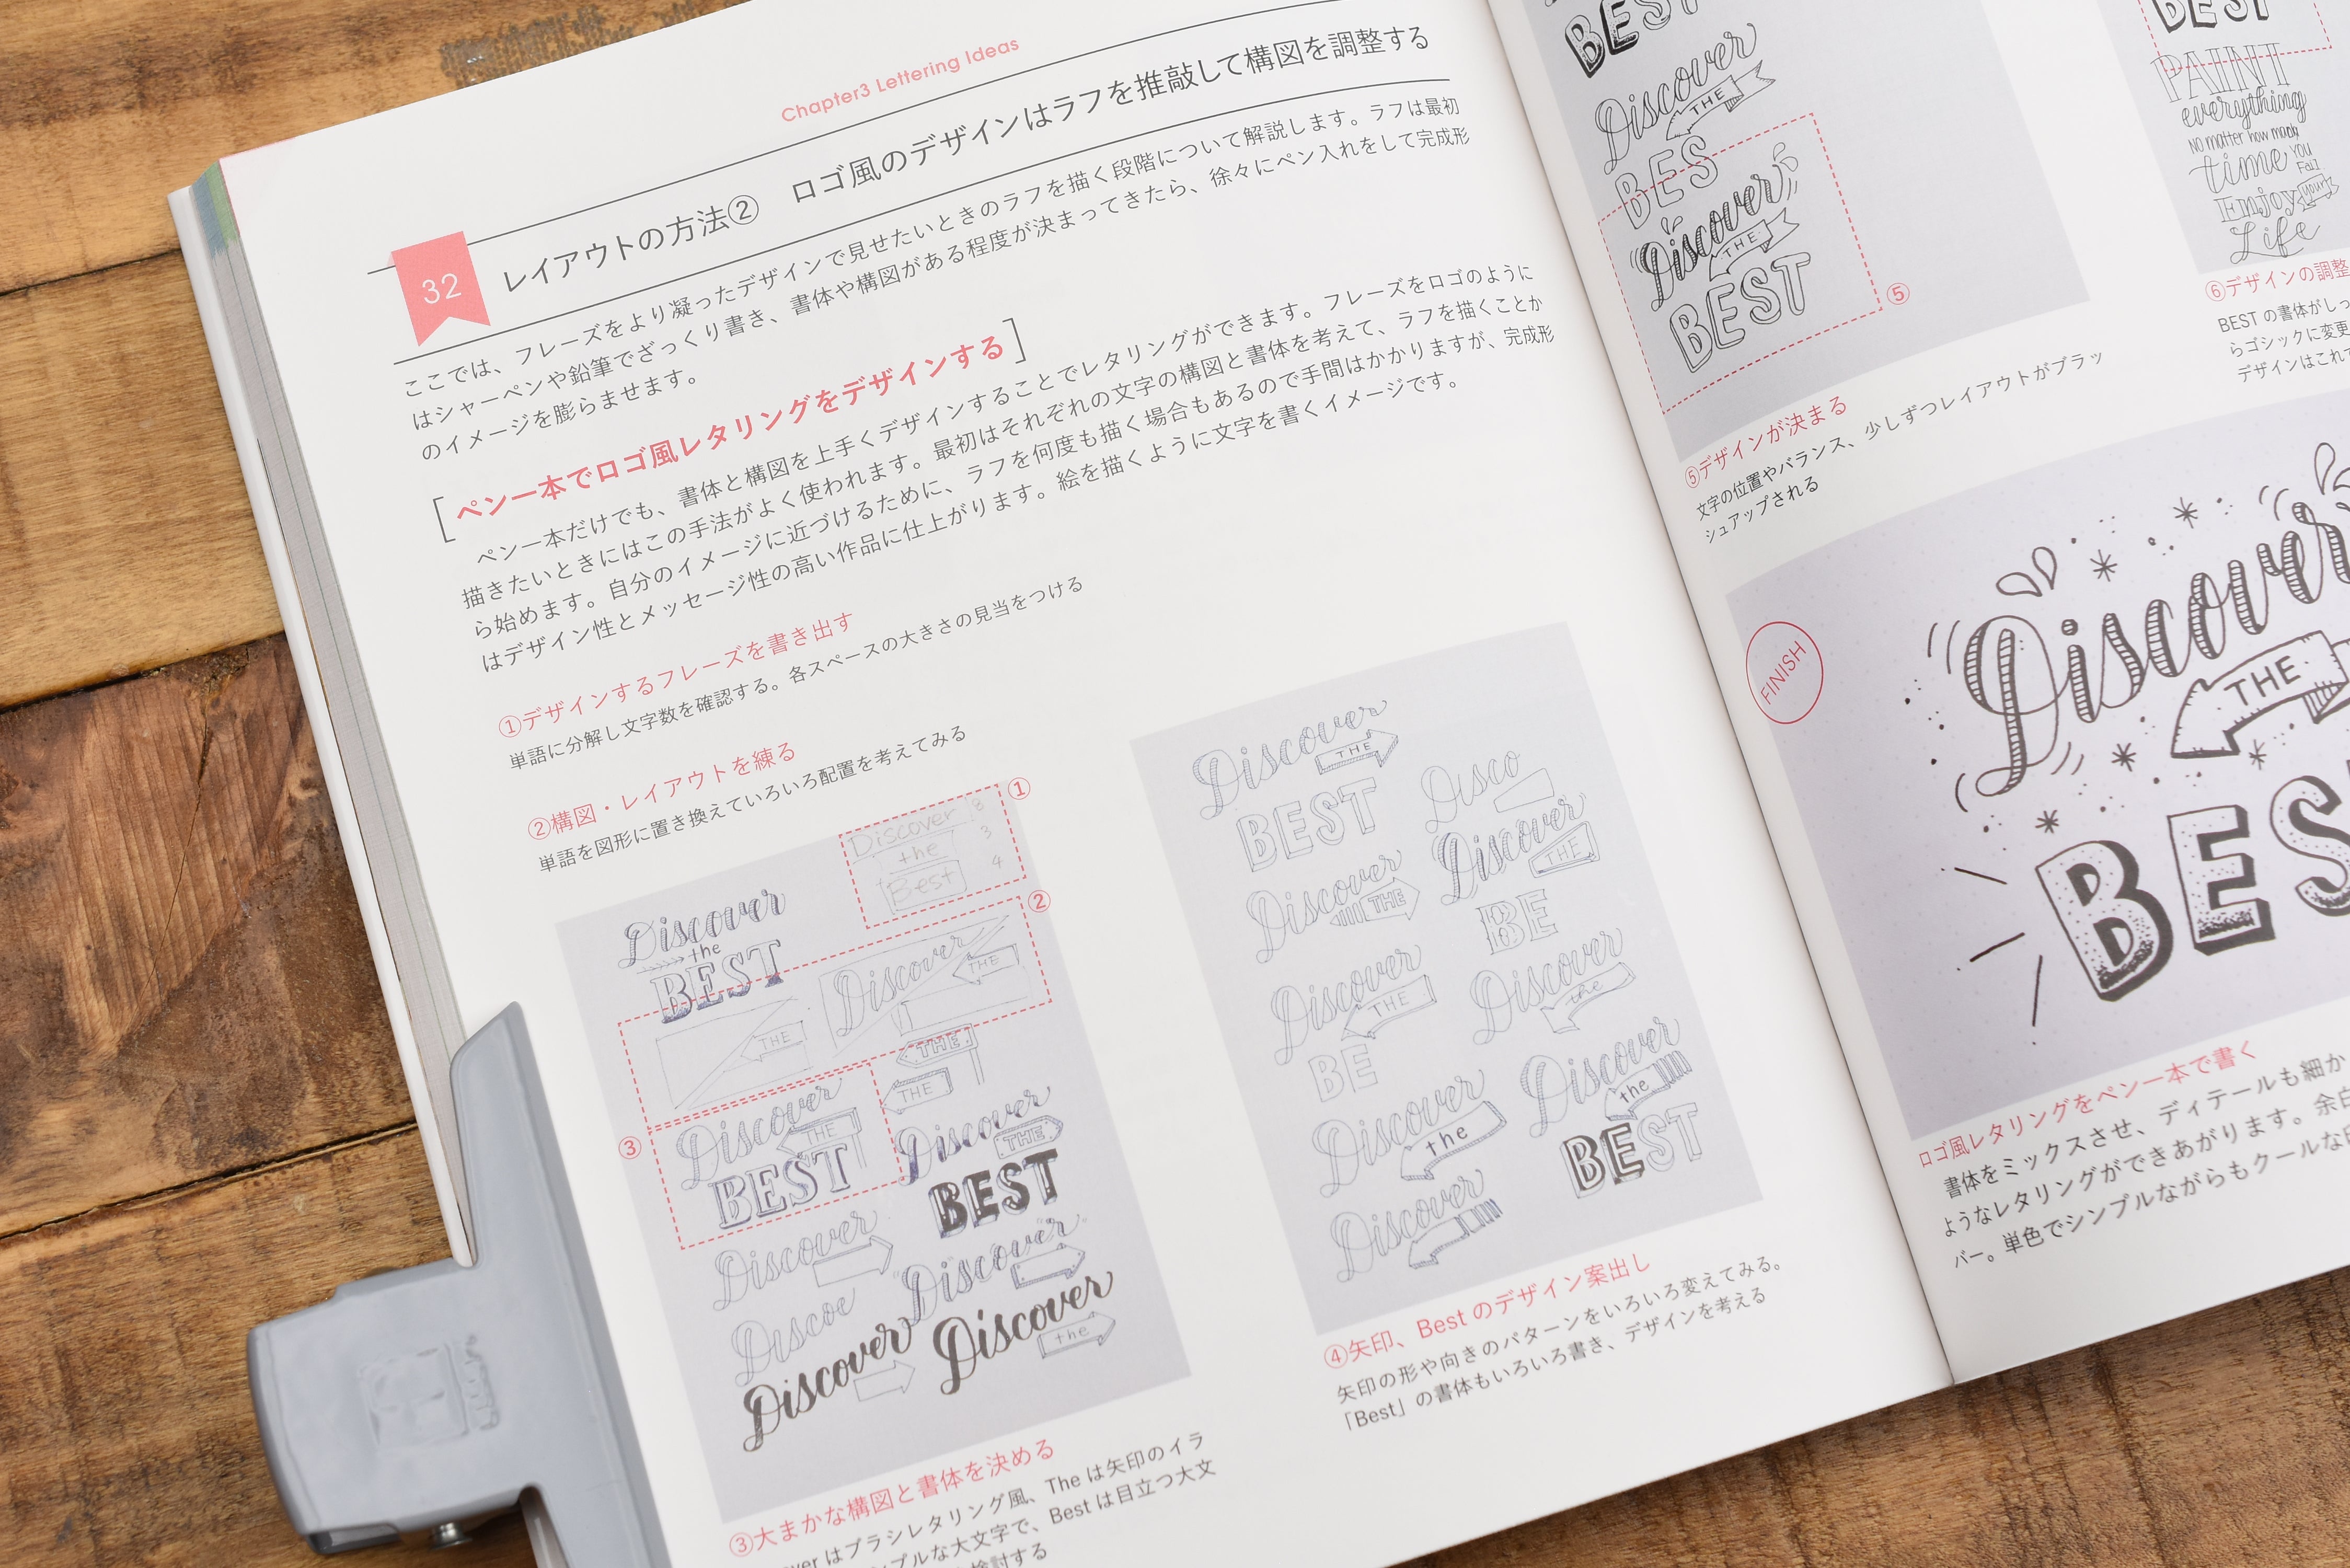 Chapter3 Lettering Ideas
32
レイアウトの方法② ロゴ風のデザインはラフを推敲して構図を調整する
ここでは、フレーズをより凝ったデザインで見せたいときのラフを描く段階について解説します。ラフは最初
はシャーペンや鉛筆でざっくり書き、書体や構図がある程度が決まってきたら、徐々にペン入れをして完成形
のイメージを膨らませます。
[ペン一本でロゴ風レタリングをデザインする]
ペン一本だけでも、書体と構図を上手くデザインすることでレタリングができます。フレーズをロゴのように
描きたいときにはこの手法がよく使われます。最初はそれぞれの文字の構図と書体を考えて、ラフを描くことか
ら始めます。自分のイメージに近づけるために、ラフを何度も描く場合もあるので手間はかかりますが、完成形
はデザイン性とメッセージ性の高い作品に仕上がります。絵を描くように文字を書くイメージです。
①デザインするフレーズを書き出す
単語に分解し文字数を確認する。各スペースの大きさの見当をつける
②構図・レイアウトを練る
単語を図形に置き換えていろいろ配置を考えてみる
①
Discover 8
the 3
Best 4
②
Discover
the
BEST
Discover
THE
THE
THE
THE
③
Discover
THE
BEST
Discover
THE
BEST
Discover
Discover
Discoe
Discover
Discover
the
③大まかな構図と書体を決める
ver はブラシレタリング風、The は矢印のイラ
ンプルな大文字で、Best は目立つ大文
検討する
Discover
THE
BEST
Disco
Discover
THE
BE
Discover
THE
Discover
THE
BE
Discover
the
Discover
the
Discover
the
BEST
Discover
④矢印、Best のデザイン案出し
矢印の形や向きのパターンをいろいろ変えてみる。
「Best」の書体もいろいろ書き、デザインを考える
BEST
Discover
THE
BES
Discover
THE
BEST
⑤
⑤デザインが決まる
文字の位置やバランス、少しずつレイアウトがブラッ
シュアップされる
BEST
PAINT
everything
No matter how much
time YOU
Enjoy your
Life
⑥デザインの調整
BEST の書体がしっ
らゴシックに変更
デザインはこれで
FINISH
Discover
THE
BES
ロゴ風レタリングをペン一本で書く
書体をミックスさせ、ディテールも細か
ようなレタリングができあがります。余白
バー。単色でシンプルながらもクールな